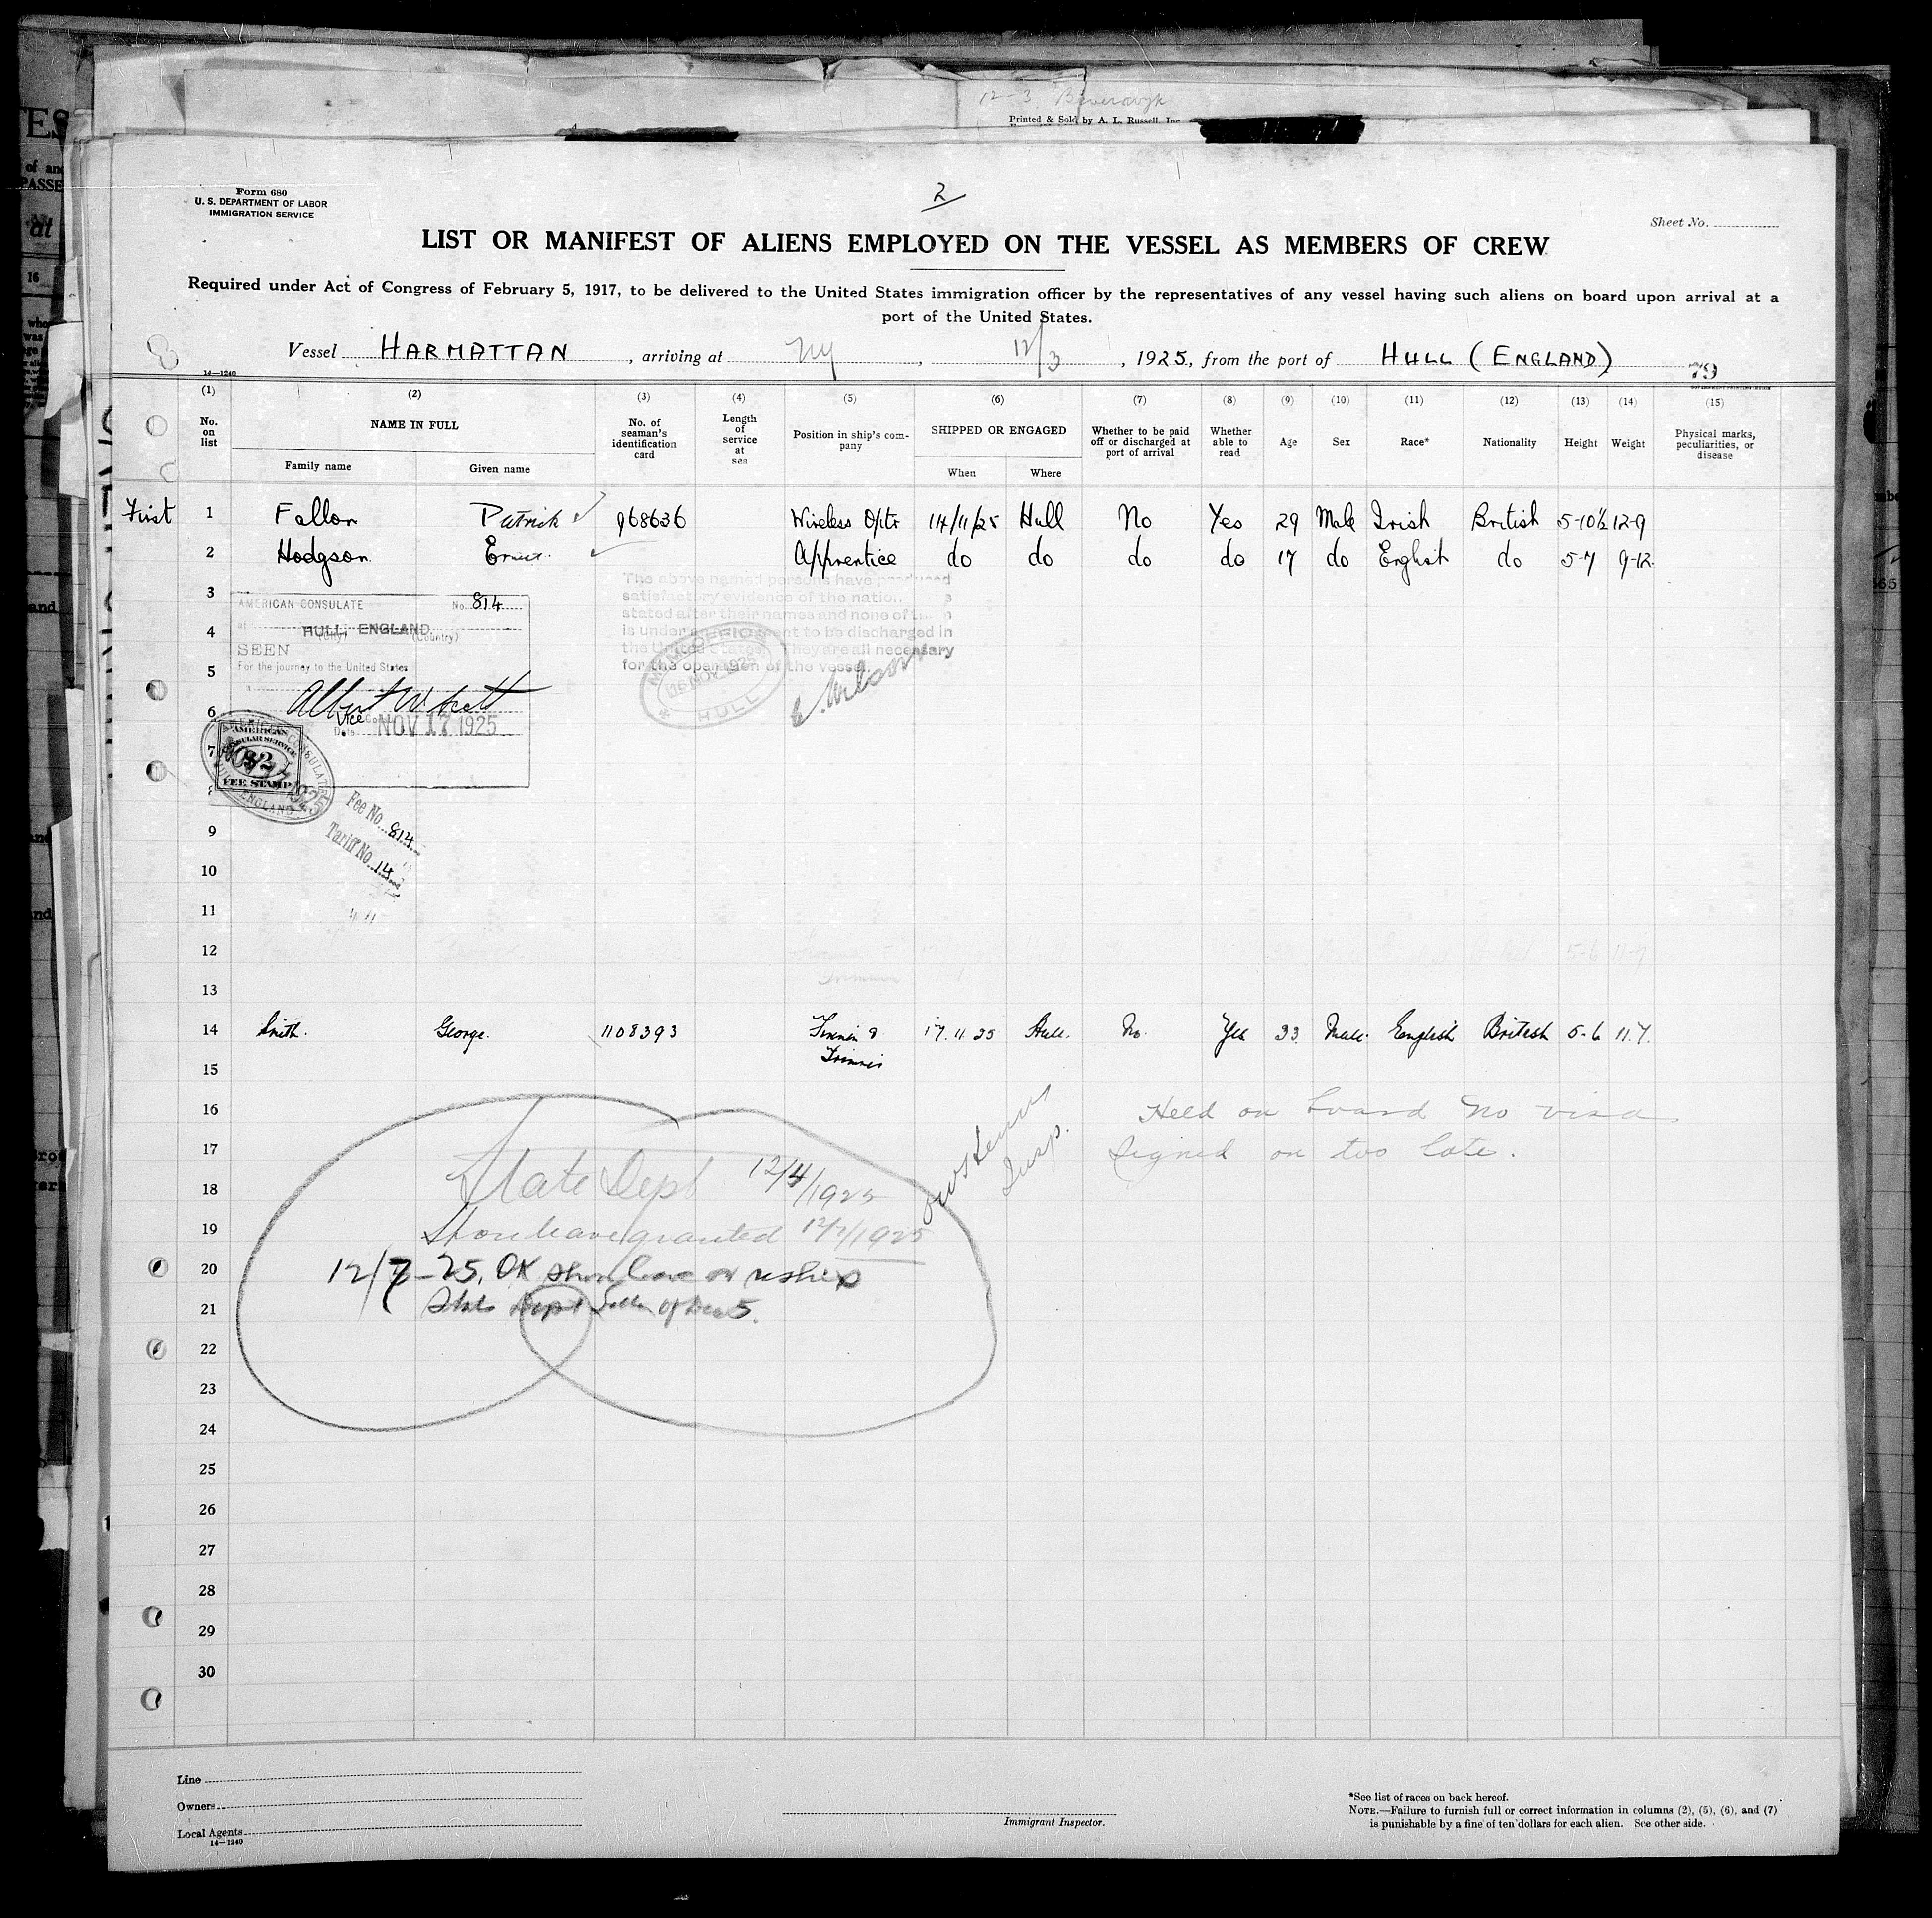 12-3
Printed & Sold by A. L. Russell, Inc.
Form 680
U. S. DEPARTMENT OF LABOR
IMMIGRATION SERVICE
2
Sheet No.
LIST OR MANIFEST OF ALIENS EMPLOYED ON THE VESSEL AS MEMBERS OF CREW
Required under Act of Congress of February 5, 1917, to be delivered to the United States immigration officer by the representatives of any vessel having such aliens on board upon arrival at a
port of the United States.
Vessel HARMATTAN, arriving at NY, 12/3, 1925, from the port of HULL (ENGLAND)
14—1240
79
(1) (2) (3) (4) (5) (6) (7) (8) (9) (10) (11) (12) (13) (14) (15)
No. on list
NAME IN FULL
Family name
Given name
No. of seaman's identification card
Length of service at sea
Position in ship's company
SHIPPED OR ENGAGED
When
Where
Whether to be paid off or discharged at port of arrival
Whether able to read
Age
Sex
Race*
Nationality
Height
Weight
Physical marks, peculiarities, or disease
First 1 Fallon Patrick 968636 Wireless Optr 14/11/25 Hull No Yes 29 Male Irish British 5-10½ 12-9
2 Hodgson Ernest Apprentice do do do do 17 do English do 5-7 9-12
The above named persons have produced
satisfactory evidence of the nation
stated after their names and none of them
is under to be discharged in
the United States. They are all necessary
for the operation of the vessel.
3
4
5
6
7
AMERICAN CONSULATE No. 814
at HULL, ENGLAND
(City) (Country)
SEEN
For the journey to the United States
Albert W. Scott
Vice Consul
Date NOV 17 1925
OFFICE
16 NOV 1925
HULL
E. Wilson
AMERICAN
CONSULAR SERVICE
$2
FEE STAMP
AMERICAN CONSULATE
ENGLAND
NOV 17 1925
Fee No. 814
Tariff No. 14
8
9
10
11
12 5-6 11-7
13
14 Smith. George. 1108393 Fireman & 17.11.25 Hull. No. Yes 33 Male. English British 5-6 11.7.
15 Trimmer
16 Held on board no visa
17 Signed on too late.
Insp.
18 State Dept 12/4/1925
19 Shore leave granted 12/7/1925
20 12/7-25, OK shore leave or reship
21 State Dept letter of Dec 5.
22
23
24
25
26
27
28
29
30
Line
Owners
Local Agents
14—1240
Immigrant Inspector.
*See list of races on back hereof.
NOTE.—Failure to furnish full or correct information in columns (2), (5), (6), and (7)
is punishable by a fine of ten dollars for each alien. See other side.